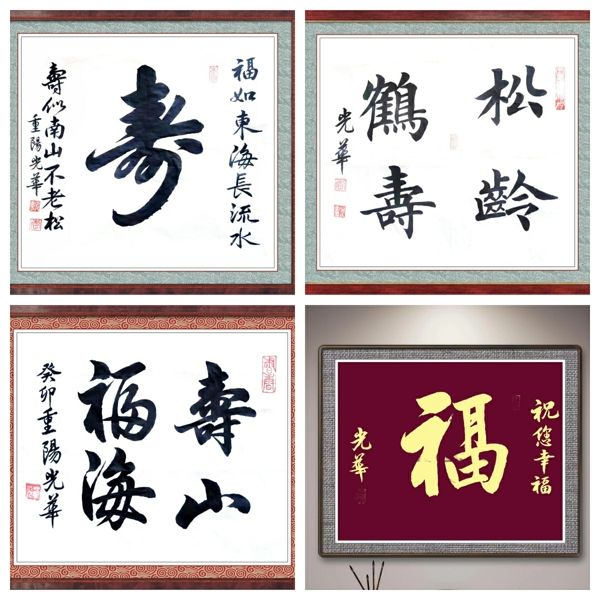 福如東海長流水
壽
壽似南山不老松
重陽光華
松齡
鶴壽
光華
壽山
福海
癸卯重陽光華
祝您幸福
福
光華